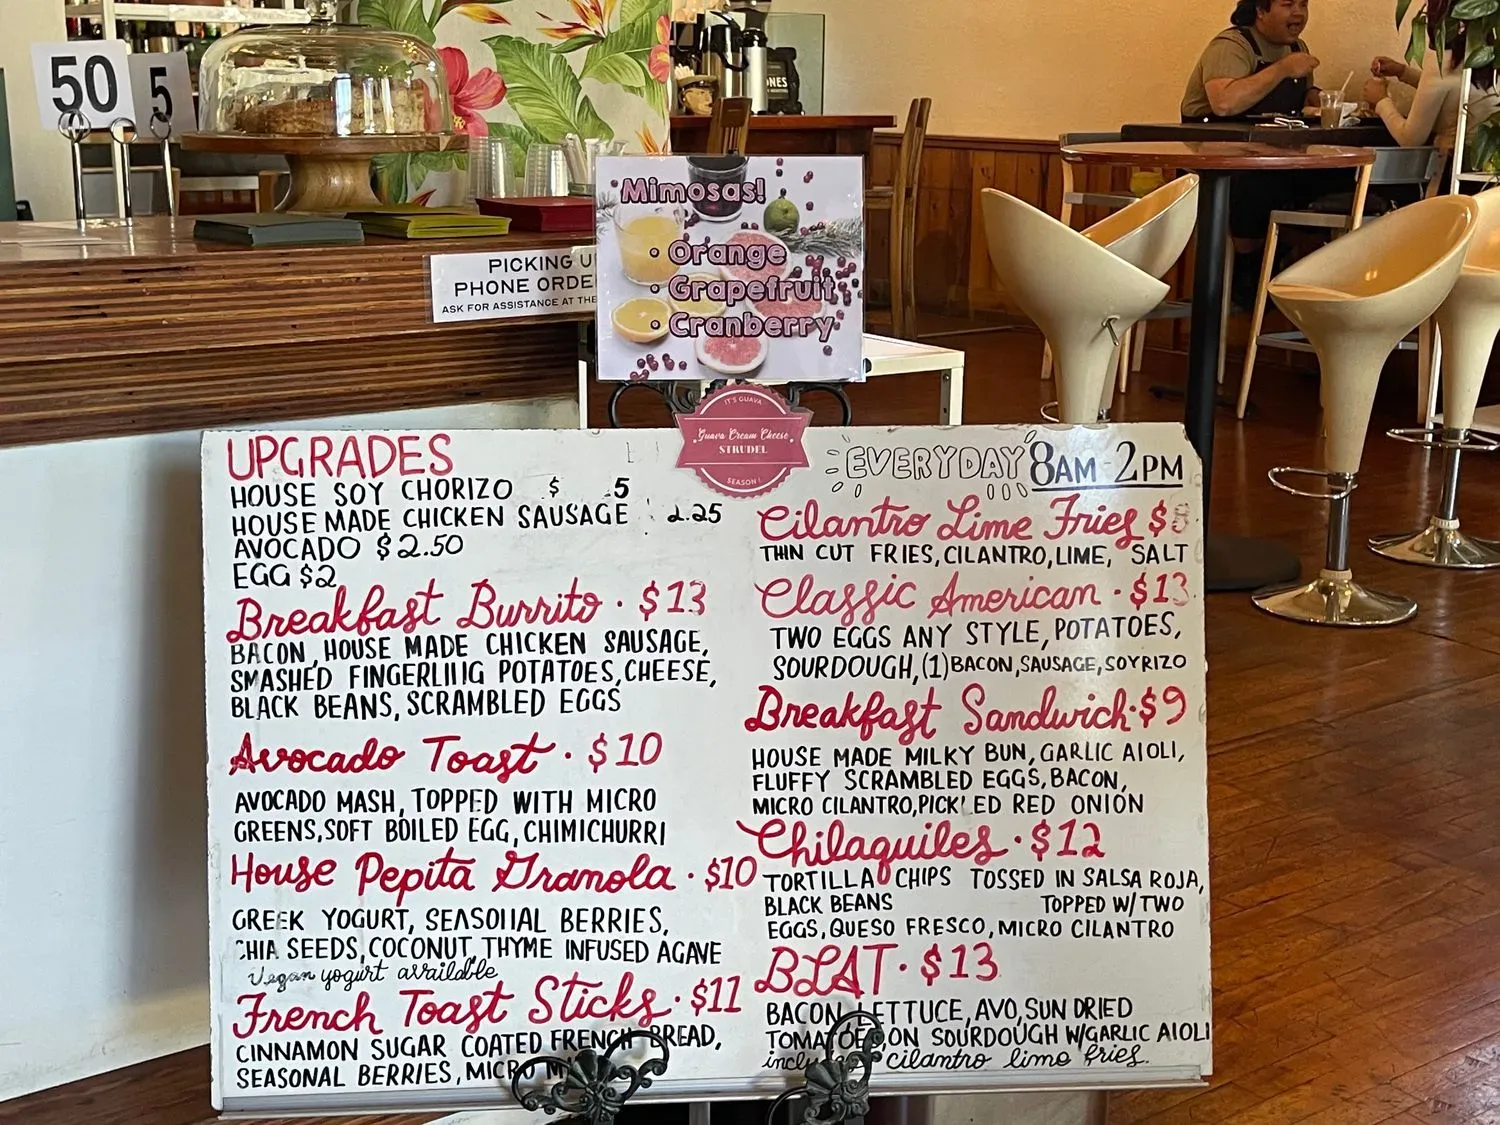 50
5
PICKING U
PHONE ORDE
ASK FOR ASSISTANCE AT THE
Mimosas!
• Orange
• Grapefruit
• Cranberry
IT'S GUAVA
Guava Cream Cheese
STRUDEL
SEASON!
UPGRADES
HOUSE SOY CHORIZO $ 5
HOUSE MADE CHICKEN SAUSAGE 2.25
AVOCADO $2.50
EGG $2
Breakfast Burrito · $13
BACON, HOUSE MADE CHICKEN SAUSAGE,
SMASHED FINGERLING POTATOES, CHEESE,
BLACK BEANS, SCRAMBLED EGGS
Avocado Toast · $10
AVOCADO MASH, TOPPED WITH MICRO
GREENS, SOFT BOILED EGG, CHIMICHURRI
House Pepita Granola · $10
GREEK YOGURT, SEASONAL BERRIES,
CHIA SEEDS, COCONUT, THYME INFUSED AGAVE
Vegan yogurt available
French Toast Sticks · $11
CINNAMON SUGAR COATED FRENCH BREAD,
SEASONAL BERRIES, MICRO
EVERYDAY 8AM-2PM
Cilantro Lime Fries $8
THIN CUT FRIES, CILANTRO, LIME, SALT
Classic American · $13
TWO EGGS ANY STYLE, POTATOES,
SOURDOUGH, (1) BACON, SAUSAGE, SOYRIZO
Breakfast Sandwich · $9
HOUSE MADE MILKY BUN, GARLIC AIOLI,
FLUFFY SCRAMBLED EGGS, BACON,
MICRO CILANTRO, PICKLED RED ONION
Chilaquiles · $12
TORTILLA CHIPS TOSSED IN SALSA ROJA,
BLACK BEANS TOPPED W/ TWO
EGGS, QUESO FRESCO, MICRO CILANTRO
BLAT · $13
BACON, LETTUCE, AVO, SUN DRIED
TOMATOES, ON SOURDOUGH W/GARLIC AIOLI
cilantro lime fries.